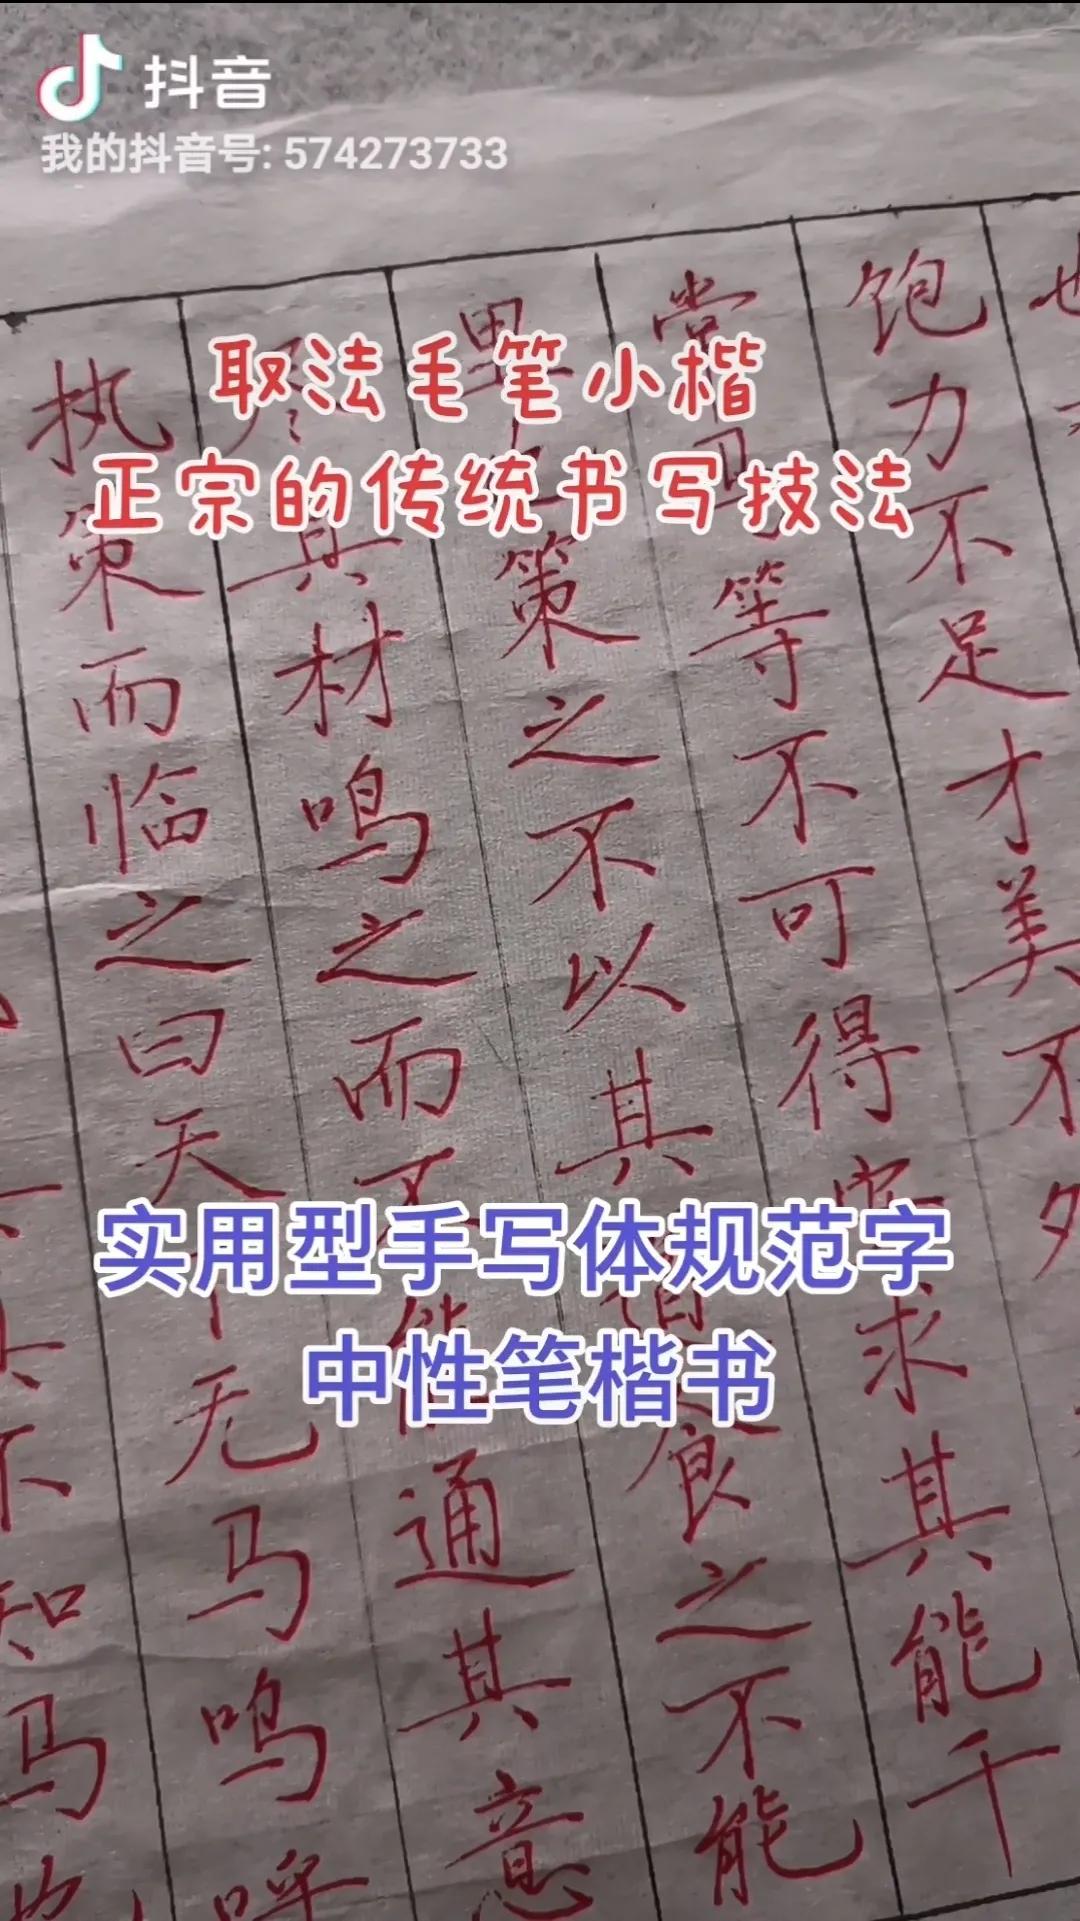 抖音
我的抖音号: 574273733
取法毛笔小楷
正宗的传统书写技法
实用型手写体规范字
中性笔楷书
饱力不足才美不
常等不可得求其能千
里策之不以其食之不能
其材鸣之而能通其意
执策而临之曰天无马鸣呼
知马